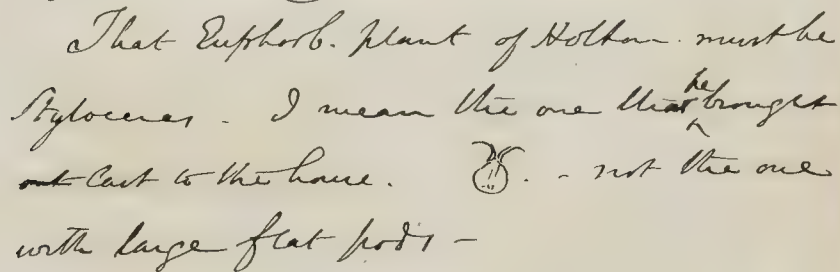 That Euphorb. plant of Holton must be
Styloceras - I mean the one that he brought
out last to the house. - not the one
with large flat pods -